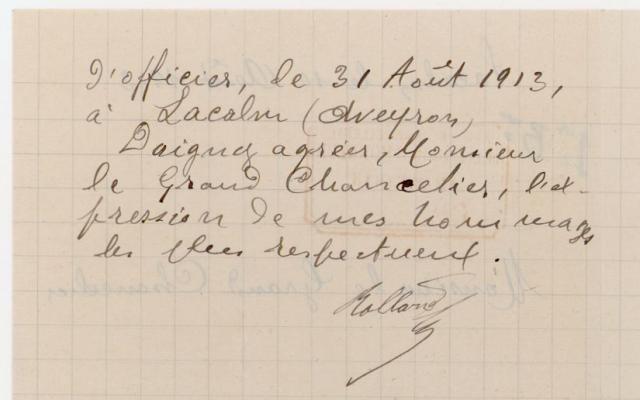 d'officier, le 31 Août 1913,
à Lacalm (Aveyron)
Daignez agréer, Monsieur
le Grand Chancelier, l'ex-
pression de mes hommages
les plus respectueux.
Rolland